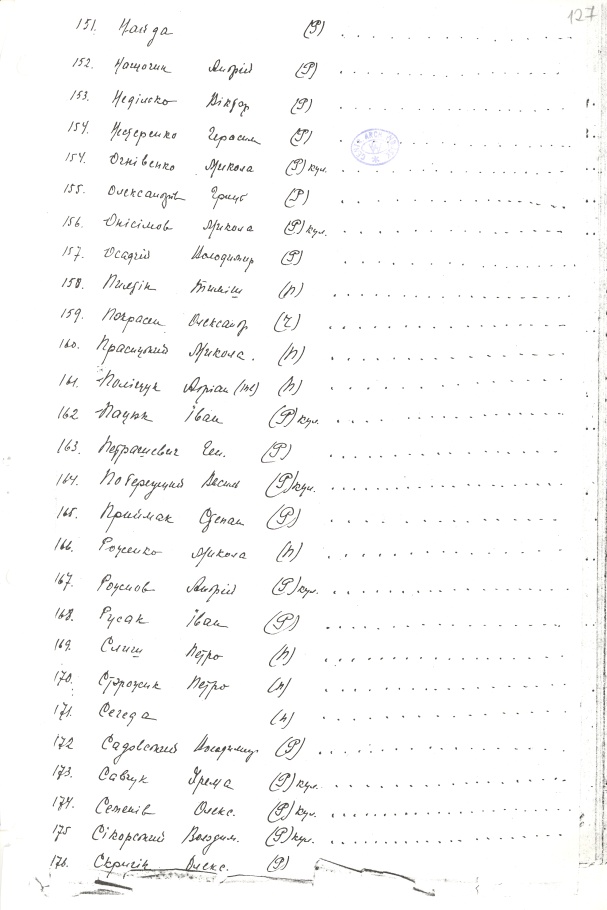 127
151. Найда (Р)
152. Нащочин Андрій (Р)
153. Неділко Віктор (Р)
154. Нестеренко Герасим (Р)
154. Огнівенко Микола (Р) кул.
155. Олександрів Гриць (Р)
156. Онісімов Микола (Р) кул.
157. Осадчій Володимир (Р)
158. Тиміш (п)
159. Олександр
160. Микола. (п)
161. Поліщук Адріан (п)
162 Пацюк Іван (Р) кул.
163. Петрасевич Ген. (Р)
164. Василь (Р) кул.
165. Приймак Степан (Р)
166. Роженко Микола (п)
167. Андрій (Р) кул.
168. Русак Іван (Р)
169. Слиш Петро (п)
170. Сторожик Петро (п)
171. Сегеда (п)
172 Садовский Володимир (Р)
173. Савчук Ярема (Р) кул.
174. Семенів Олекс. (Р) кул.
175 Сікорский Володим. (Р) кул.
176. Скригін Олекс. (Р)